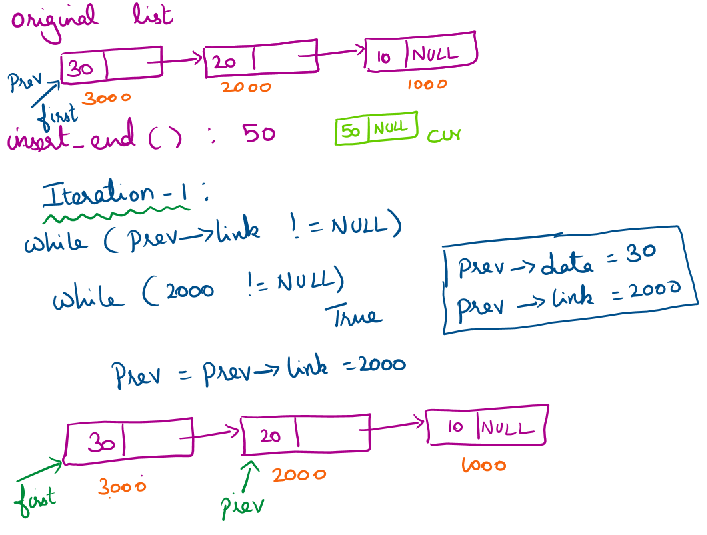 original list
30 20 10 NULL
Prev
3000 2000 1000
first
insert_end ( ) : 50 50 NULL cur
Iteration - 1 :
while ( Prev→link != NULL)
while ( 2000 != NULL)
True
Prev → data = 30
Prev → link = 2000
Prev = Prev→ link = 2000
30 20 10 NULL
first 3000 2000 1000
Prev